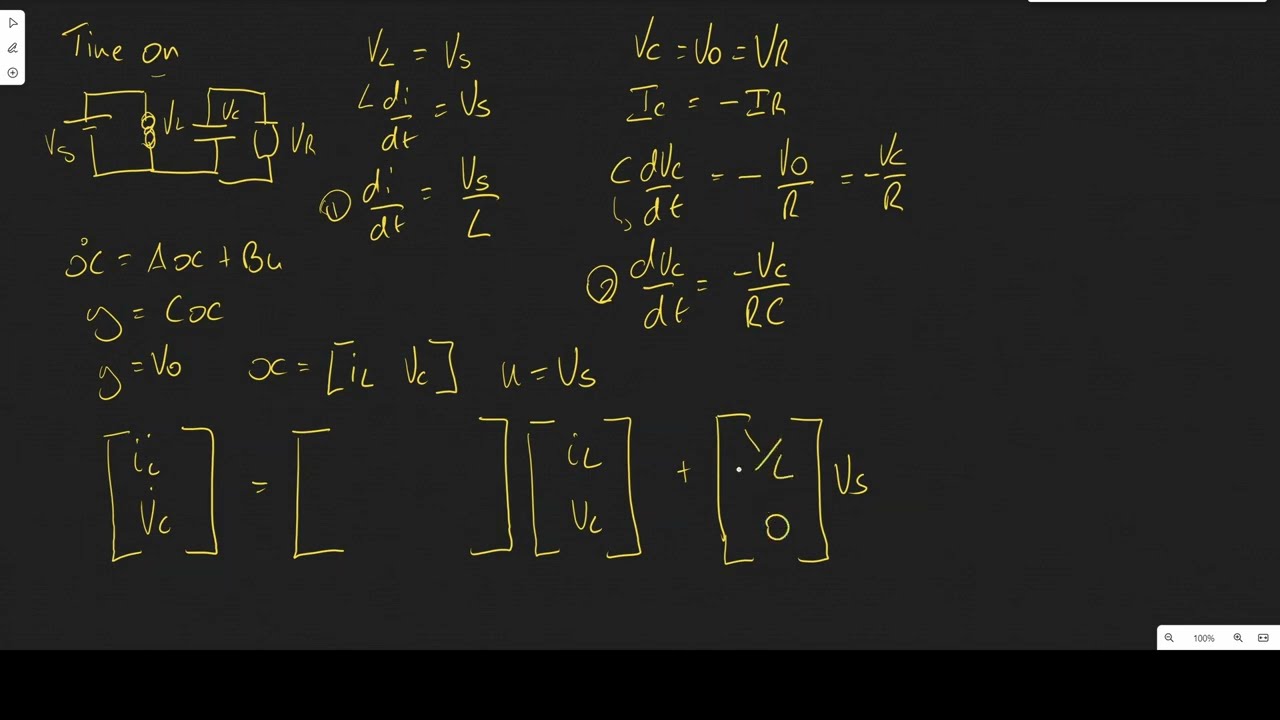 Time on
VS VL VC VR
VL = VS
L di/dt = VS
① di/dt = VS/L
VC = VO = VR
IC = - IR
C dVC/dt = - VO/R = - VC/R
② dVC/dt = -VC/RC
ẋ = Ax + Bu
y = Cx
y = VO x = [iL VC] u = VS
[i̇L V̇C] = [ ] [iL VC] + [1/L 0] VS
100%